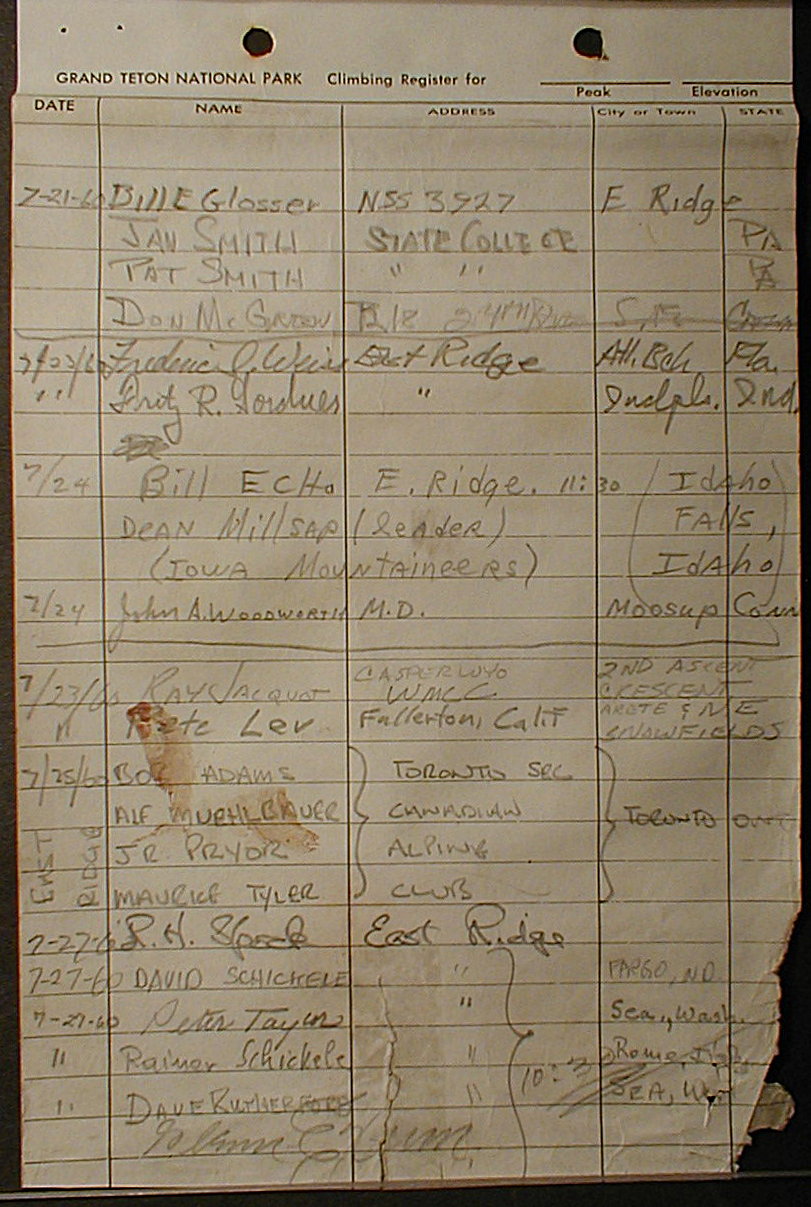 GRAND TETON NATIONAL PARK Climbing Register for
Peak Elevation
DATE NAME ADDRESS City or Town STATE
7-21-60 Bill E Glosser NSS 3927 E Ridge
JAN SMITH STATE COLLEGE PA
PAT SMITH " " PA
DON
7/23/60 Frederic J. East Ridge Atl. Bch Fla.
" " Fritz R. " Indpls. Ind.
7/24 Bill ECHo E. Ridge. 11:30 (Idaho
DEAN Millsap (leader) FALLS,
(IOWA Mountaineers) Idaho)
7/24 John A. WOODWORTH M.D. Moosup Conn
7/23/60 RAY JACQUOT CASPER WYO 2ND ASCENT
WMCC CRESCENT
" Pete Lev Fullerton, Calif ARETE & NE
SNOWFIELDS
7/25/60 BOB ADAMS TORONTO SEC
ALF MUEHLBAUER CANADIAN TORONTO ONT
EAST RIDGE
J R. PRYOR ALPINE
MAURICE TYLER CLUB
7-27-60 R. H. East Ridge
7-27-60 DAVID SCHICKELE " FARGO, ND.
7-27-60 Peter Taylor " Sea., Wash.
" Rainer Schickele " 10:30 Rome, Italy
" DAVE RUTHERFORD " SEA,
"